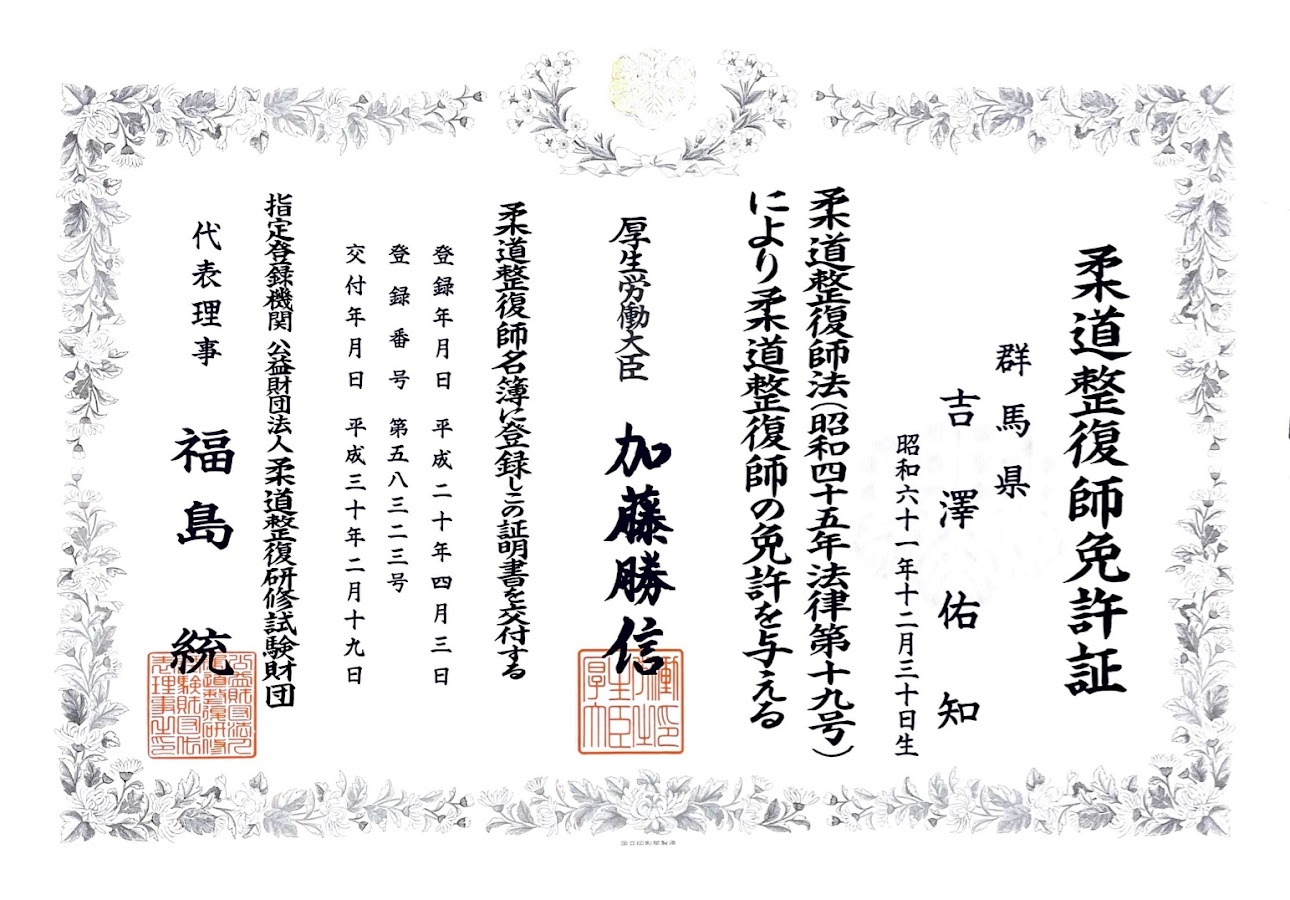 柔道整復師免許証
群馬県
吉澤佑知
昭和六十一年十二月三十日生
柔道整復師法(昭和四十五年法律第十九号)
により柔道整復師の免許を与える
厚生労働大臣 加藤勝信
柔道整復師名簿に登録しこの証明書を交付する
登録年月日 平成二十年四月三日
登録番号 第五八三二三号
交付年月日 平成三十年二月十九日
指定登録機関 公益財団法人 柔道整復研修試験財団
代表理事 福島 統
国立印刷局製造